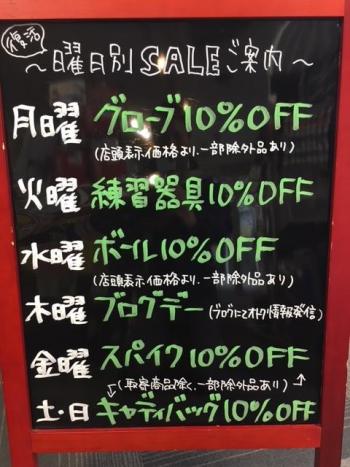 復活
～曜日別SALEご案内～
月曜 グローブ10%OFF
(店頭表示価格より、一部除外品あり)
火曜 練習器具10%OFF
水曜 ボール10%OFF
(店頭表示価格より、一部除外品あり)
木曜 ブログデー(ブログにてオトク情報発信)
金曜 スパイク10%OFF
(取寄商品除く、一部除外品あり)
土・日 キャディバッグ10%OFF